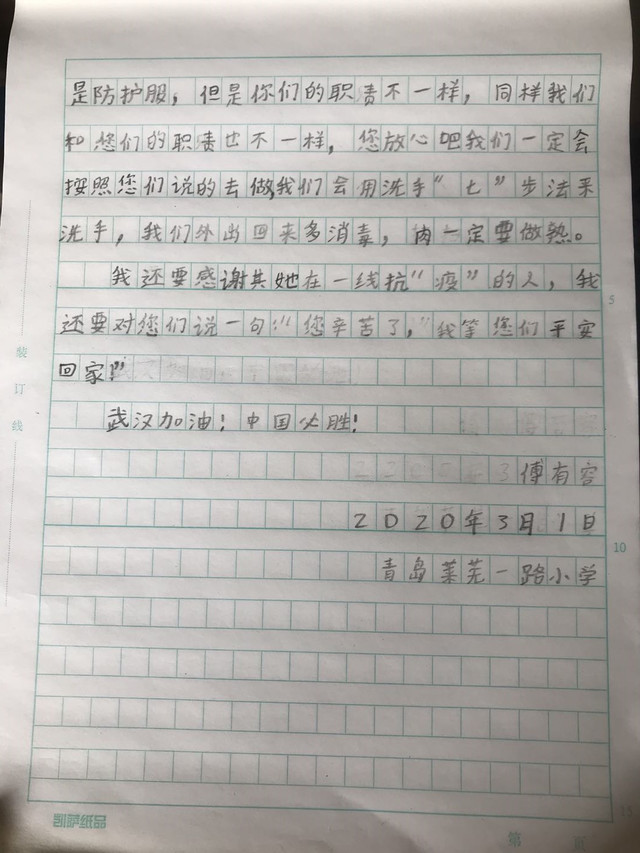 是防护服，但是你们的职责不一样，同样我们
和您们的职责也不一样，您放心吧我们一定会
按照您们说的去做，我们会用洗手“七”步法来
洗手，我们外出回来多消毒，肉一定要做熟。
我还要感谢其她在一线抗“疫”的人，我
还要对您们说一句：“您辛苦了，”我等您们平安
回家！”
武汉加油！中国必胜！
傅有容
2020年3月1日
青岛莱芜一路小学
装订线
5
10
15
凯萨纸品
第 页